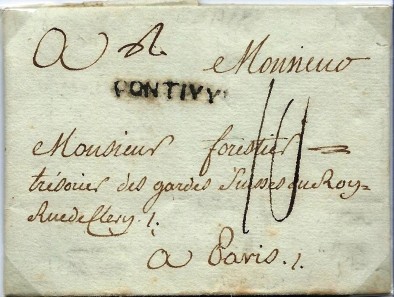 A Monsieur
PONTIVY
Monsieur forestier
trésorier des gardes Suisses du Roy
Rue de Clery.
10
a Paris.